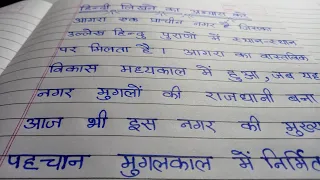 हिन्दी लिखने का अभ्यास करे
आगरा एक प्राचीन नगर है जिसका
उल्लेख हिन्दु पुराणों में स्थान-स्थान
पर मिलता है। आगरा का वास्तविक
विकास मध्यकाल में हुआ, जब यह
नगर मुगलों की राजधानी बना
आज भी इस नगर की मुख्य
पहचान मुगलकाल में निर्मित